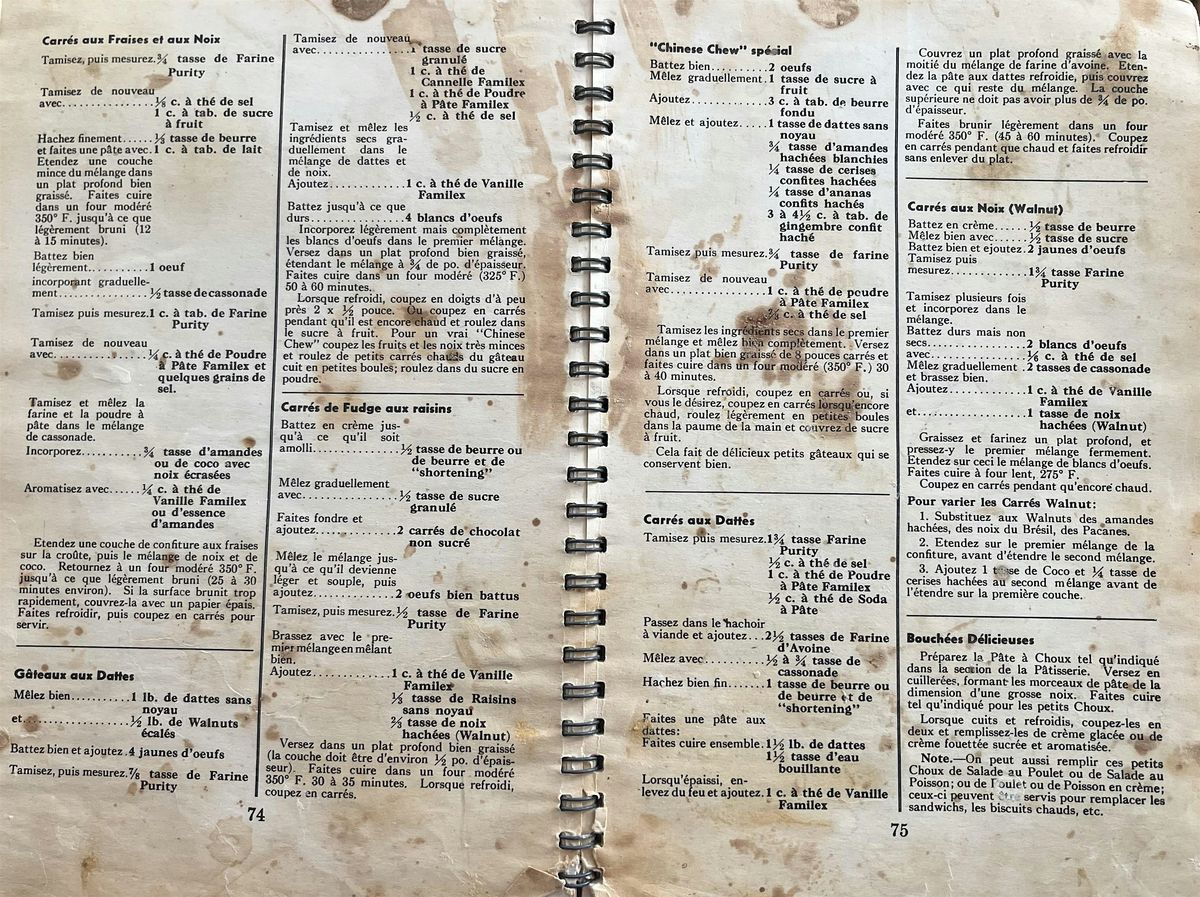 Carrés aux Fraises et aux Noix
Tamisez, puis mesurez.¾ tasse de Farine
Purity
Tamisez de nouveau
avec...............⅛ c. à thé de sel
1 c. à tab. de sucre
à fruit
Hachez finement......⅓ tasse de beurre
et faites une pâte avec.1 c. à tab. de lait
Etendez une couche
mince du mélange dans
un plat profond bien
graissé. Faites cuire
dans un four modéré
350° F. jusqu'à ce que
légèrement bruni (12
à 15 minutes).
Battez bien
légèrement..........1 oeuf
incorporant graduelle-
ment...............½ tasse de cassonade
Tamisez puis mesurez.1 c. à tab. de Farine
Purity
Tamisez de nouveau
avec...............¼ c. à thé de Poudre
à Pâte Familex et
quelques grains de
sel.
Tamisez et mêlez la
farine et la poudre à
pâte dans le mélange
de cassonade.
Incorporez..........¾ tasse d'amandes
ou de coco avec
noix écrasées
Aromatisez avec......¼ c. à thé de
Vanille Familex
ou d'essence
d'amandes
Etendez une couche de confiture aux fraises
sur la croûte, puis le mélange de noix et de
coco. Retournez à un four modéré 350° F.
jusqu'à ce que légèrement bruni (25 à 30
minutes environ). Si la surface brunit trop
rapidement, couvrez-la avec un papier épais.
Faites refroidir, puis coupez en carrés pour
servir.
Gâteaux aux Dattes
Mêlez bien..........1 lb. de dattes sans
noyau
et..................½ lb. de Walnuts
écalés
Battez bien et ajoutez.4 jaunes d'oeufs
Tamisez, puis mesurez.⅞ tasse de Farine
Purity
Tamisez de nouveau
avec...............1 tasse de sucre
granulé
1 c. à thé de
Cannelle Familex
1 c. à thé de Poudre
à Pâte Familex
½ c. à thé de sel
Tamisez et mêlez les
ingrédients secs gra-
duellement dans le
mélange de dattes et
de noix.
Ajoutez............1 c. à thé de Vanille
Familex
Battez jusqu'à ce que
durs...............4 blancs d'oeufs
Incorporez légèrement mais complètement
les blancs d'oeufs dans le premier mélange.
Versez dans un plat profond bien graissé,
étendant le mélange à ¾ de po. d'épaisseur.
Faites cuire dans un four modéré (325° F.)
50 à 60 minutes.
Lorsque refroidi, coupez en doigts d'à peu
près 2 x ½ pouce. Ou coupez en carrés
pendant qu'il est encore chaud et roulez dans
le sucre à fruit. Pour un vrai "Chinese
Chew" coupez les fruits et les noix très minces
et roulez de petits carrés chauds du gâteau
cuit en petites boules; roulez dans du sucre en
poudre.
Carrés de Fudge aux raisins
Battez en crème jus-
qu'à ce qu'il soit
amolli.............½ tasse de beurre ou
de beurre et de
"shortening"
Mêlez graduellement
avec...............½ tasse de sucre
granulé
Faites fondre et
ajoutez.............2 carrés de chocolat
non sucré
Mêlez le mélange jus-
qu'à ce qu'il devienne
léger et souple, puis
ajoutez.............2 oeufs bien battus
Tamisez, puis mesurez.½ tasse de Farine
Purity
Brassez avec le pre-
mier mélange en mêlant
bien.
Ajoutez............1 c. à thé de Vanille
Familex
⅓ tasse de Raisins
sans noyau
⅔ tasse de noix
hachées (Walnut)
Versez dans un plat profond bien graissé
(la couche doit être d'environ ½ po. d'épais-
seur). Faites cuire dans un four modéré
350° F. 30 à 35 minutes. Lorsque refroidi,
coupez en carrés.
74
"Chinese Chew" spécial
Battez bien..........2 oeufs
Mêlez graduellement.1 tasse de sucre à
fruit
Ajoutez............3 c. à tab. de beurre
fondu
Mêlez et ajoutez.....1 tasse de dattes sans
noyau
¾ tasse d'amandes
hachées blanchies
¼ tasse de cerises
confites hachées
¼ tasse d'ananas
confits hachés
3 à 4½ c. à tab. de
gingembre confit
haché
Tamisez puis mesurez.¾ tasse de farine
Purity
Tamisez de nouveau
avec...............1 c. à thé de poudre
à Pâte Familex
c. à thé de sel
Tamisez les ingrédients secs dans le premier
mélange et mêlez bien complètement. Versez
dans un plat bien graissé de 8 pouces carrés et
faites cuire dans un four modéré (350° F.) 30
à 40 minutes.
Lorsque refroidi, coupez en carrés ou, si
vous le désirez, coupez en carrés lorsqu'encore
chaud, roulez légèrement en petites boules
dans la paume de la main et couvrez de sucre
à fruit.
Cela fait de délicieux petits gâteaux qui se
conservent bien.
Carrés aux Dattes
Tamisez puis mesurez.1¾ tasse Farine
Purity
½ c. à thé de sel
1 c. à thé de Poudre
à Pâte Familex
½ c. à thé de Soda
à Pâte
Passez dans le hachoir
à viande et ajoutez...2½ tasses de Farine
d'Avoine
Mêlez avec..........½ à ¾ tasse de
cassonade
Hachez bien fin......1 tasse de beurre ou
de beurre et de
"shortening"
Faites une pâte aux
dattes:
Faites cuire ensemble.1½ lb. de dattes
1½ tasse d'eau
bouillante
Lorsqu'épaissi, en-
levez du feu et ajoutez.1 c. à thé de Vanille
Familex
Couvrez un plat profond graissé avec la
moitié du mélange de farine d'avoine. Eten-
dez la pâte aux dattes refroidie, puis couvrez
avec ce qui reste du mélange. La couche
supérieure ne doit pas avoir plus de ¾ de po.
d'épaisseur.
Faites brunir légèrement dans un four
modéré 350° F. (45 à 60 minutes). Coupez
en carrés pendant que chaud et faites refroidir
sans enlever du plat.
Carrés aux Noix (Walnut)
Battez en crème......½ tasse de beurre
Mêlez bien avec......½ tasse de sucre
Battez bien et ejoutez.2 jaunes d'oeufs
Tamisez puis
mesurez............1¾ tasse Farine
Purity
Tamisez plusieurs fois
et incorporez dans le
mélange.
Battez durs mais non
secs...............2 blancs d'oeufs
avec...............⅛ c. à thé de sel
Mêlez graduellement.2 tasses de cassonade
et brassez bien.
Ajoutez............1 c. à thé de Vanille
Familex
et..................1 tasse de noix
hachées (Walnut)
Graissez et farinez un plat profond, et
pressez-y le premier mélange fermement.
Etendez sur ceci le mélange de blancs d'oeufs.
Faites cuire à four lent, 275° F.
Coupez en carrés pendant qu'encore chaud.
Pour varier les Carrés Walnut:
1. Substituez aux Walnuts des amandes
hachées, des noix du Brésil, des Pacanes.
2. Etendez sur le premier mélange de la
confiture, avant d'étendre le second mélange.
3. Ajoutez 1 tasse de Coco et ¼ tasse de
cerises hachées au second mélange avant de
l'étendre sur la première couche.
Bouchées Délicieuses
Préparez la Pâte à Choux tel qu'indiqué
dans la section de la Pâtisserie. Versez en
cuillerées, formant les morceaux de pâte de la
dimension d'une grosse noix. Faites cuire
tel qu'indiqué pour les petits Choux.
Lorsque cuits et refroidis, coupez-les en
deux et remplissez-les de crème glacée ou de
crème fouettée sucrée et aromatisée.
Note.—On peut aussi remplir ces petits
Choux de Salade au Poulet ou de Salade au
Poisson; ou de Poulet ou de Poisson en crème;
ceux-ci peuvent être servis pour remplacer les
sandwichs, les biscuits chauds, etc.
75